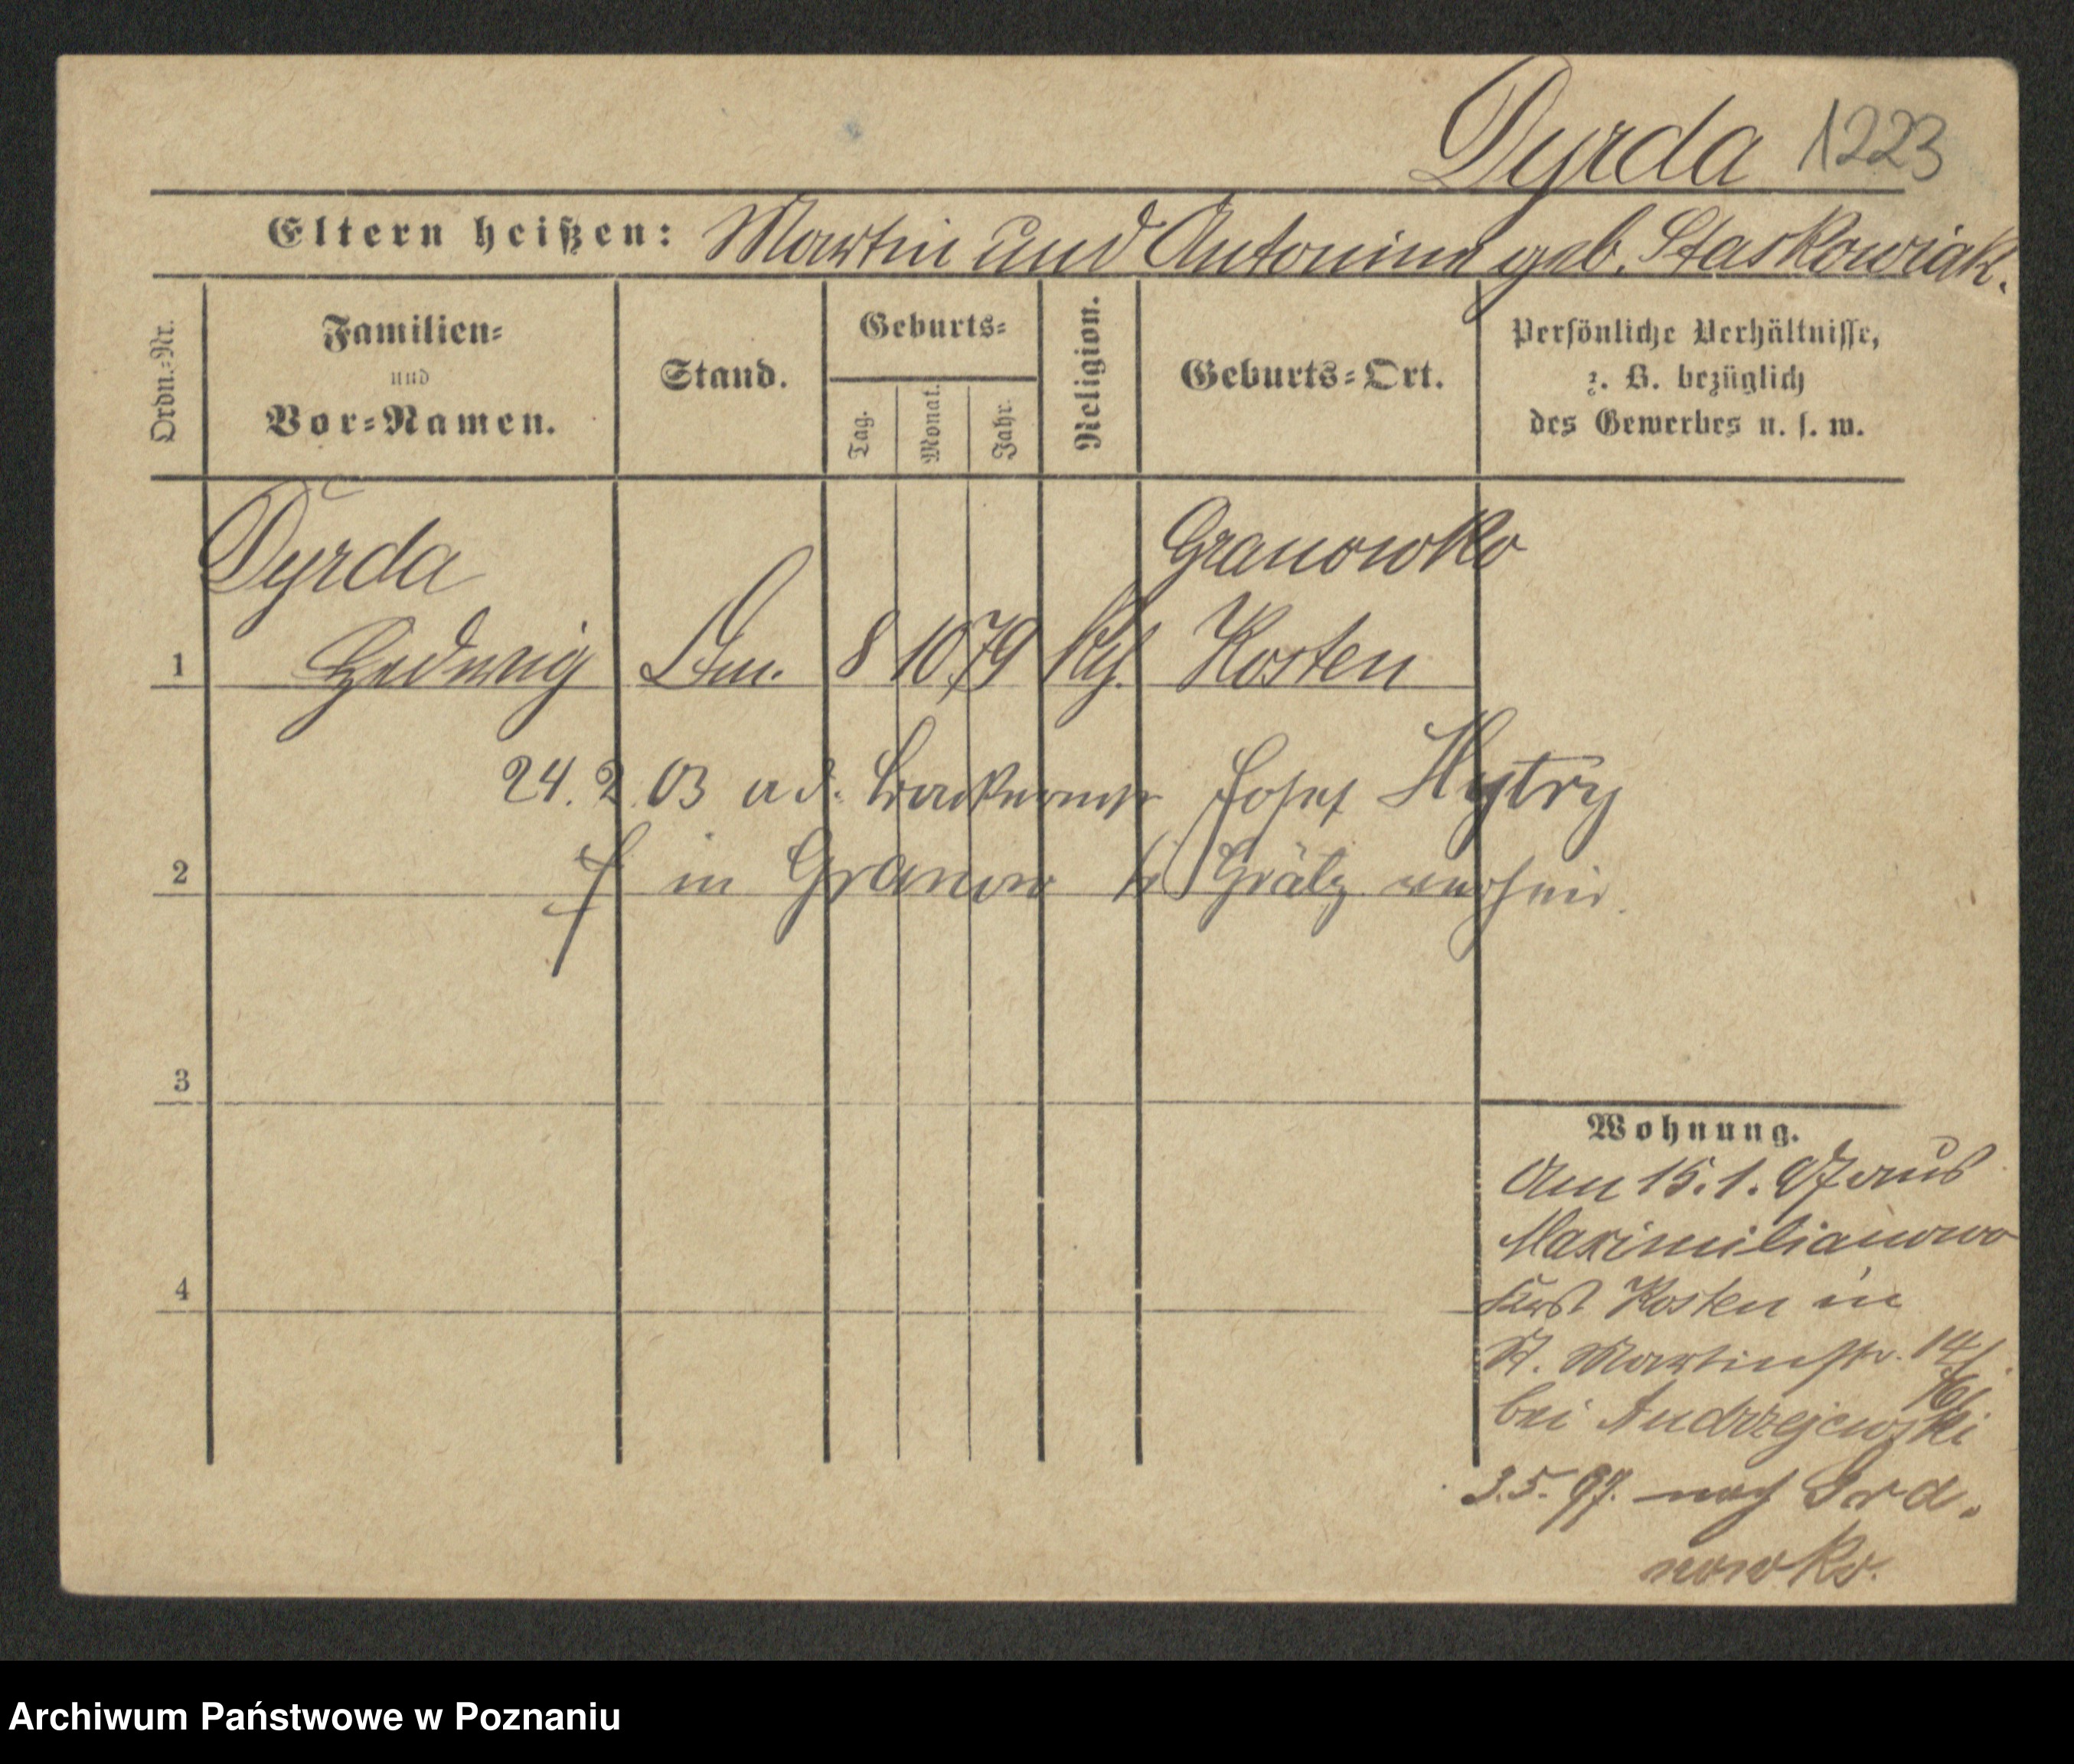 Dyrda 1223
Eltern heißen: Martin und Antonina geb. Staskowiak.
Ordn.=Nr.
Familien=
und
Vor=Namen.
Stand.
Geburts=
Tag.
Monat.
Jahr.
Religion.
Geburts=Ort.
Persönliche Verhältnisse,
z. B. bezüglich
des Gewerbes u. s. w.
Dyrda Granowko
1 Hedwig 8 10 79 Kth. Kosten
24. 2. 03 a. d. Josef Hytry
2 in Granowo b Grätz verheir.
3
4
Wohnung.
Am 15.1.97 aus
Maximilianowo
Kost Kosten in
St. Martinstr. 14/
bei Andrzejewski
3.5.97. nach Grd.
nowko.
Archiwum Państwowe w Poznaniu